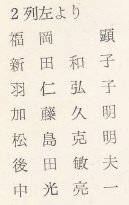 2列左より
福岡　顕
新田和子
羽仁弘子
加藤久明
松島克明
後田敏夫
中光亮一